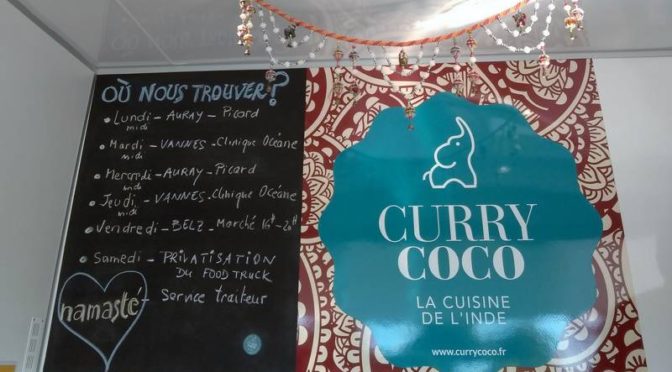 OÙ NOUS TROUVER?
Lundi - AURAY - Picard
midi
Mardi - VANNES - Clinique Océane
midi
Mercredi - AURAY - Picard
midi
Jeudi - VANNES - Clinique Océane
midi
Vendredi - BELZ - Marché 16H-20H
Samedi - PRIVATISATION
DU FOOD TRUCK
- Service traiteur
namasté
CURRY
COCO
LA CUISINE
DE L'INDE
www.currycoco.fr